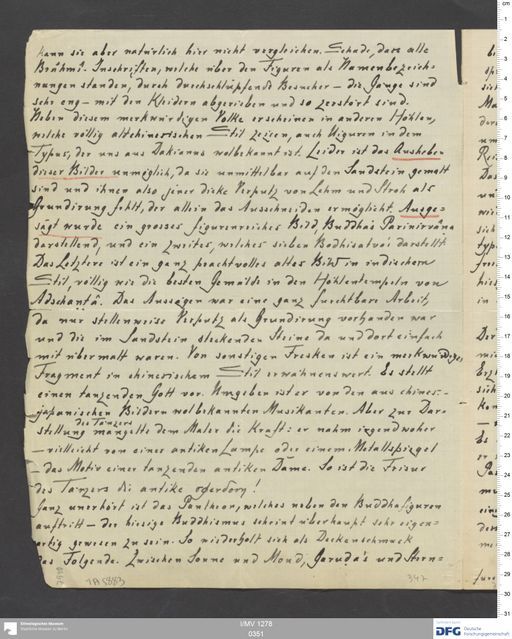 kann sie aber natürlich hier nicht vergleichen. Schade, dass alle
Brāhmī-Inschriften, welche über den Figuren als Namenbezeich-
nungen standen, durch durchschlüpfende Besucher – die Gänge sind
sehr eng – mit den Kleidern abgerieben und so zerstört sind.
Neben diesem merkwürdigen Volke erscheinen in anderen Höhlen,
welche völlig altchinesischen Stil zeigen, auch Uiguren in dem
Typus, der uns aus Dakianus wolbekannt ist. Leider ist das Ausheben
dieser Bilder unmöglich, da sie unmittelbar auf den Sandstein gemalt
sind und ihnen also jener dicke Verputz von Lehm und Stroh als
Grundirung fehlt, der allein das Ausschneiden ermöglicht. Ausge-
sägt wurde ein grosses figurenreiches Bild, Buddhas Parinirvāṇa
darstellend, und ein zweites, welches sieben Bodhisatvas darstellt.
Das Letztere ist ein ganz prachtvolles altes Bild in indischem
Stil, völlig wie die besten Gemälde in den Höhlentempeln von
Adschantā. Das Aussägen war eine ganz furchtbare Arbeit,
da nur stellenweise Verputz als Grundirung vorhanden war
und die im Sandstein steckenden Steine da und dort einfach
mit übermalt waren. Von sonstigen Fresken ist ein merkwürdiges
Fragment in chinesischem Stil erwähnenswert. Es stellt
einen tanzenden Gott vor. Umgeben ist er von den aus chines.-
japanischen Bildern wolbekannten Musikanten. Aber zur Dar-
des Tänzers
stellung mangelte dem Maler die Kraft: er nahm irgend woher
– vielleicht von einer antiken Lampe oder einem Metallspiegel
– das Motiv einer tanzenden antiken Dame. So ist die Frisur
des Tänzers die antike
Ganz unerhört ist das Pantheon, welches neben den Buddhafiguren
auftritt – der hiesige Buddhismus scheint überhaupt sehr eigen-
artig gewesen zu sein. So wiederholt sich als Deckenschmuck
das Folgende. Zwischen Sonne und Mond, Garuḍa's und Stern-
TA 5883
347
I/MV 1278
0351
Ethnologisches Museum
Staatliche Museen zu Berlin
DFG
Deutsche
Forschungsgemeinschaft